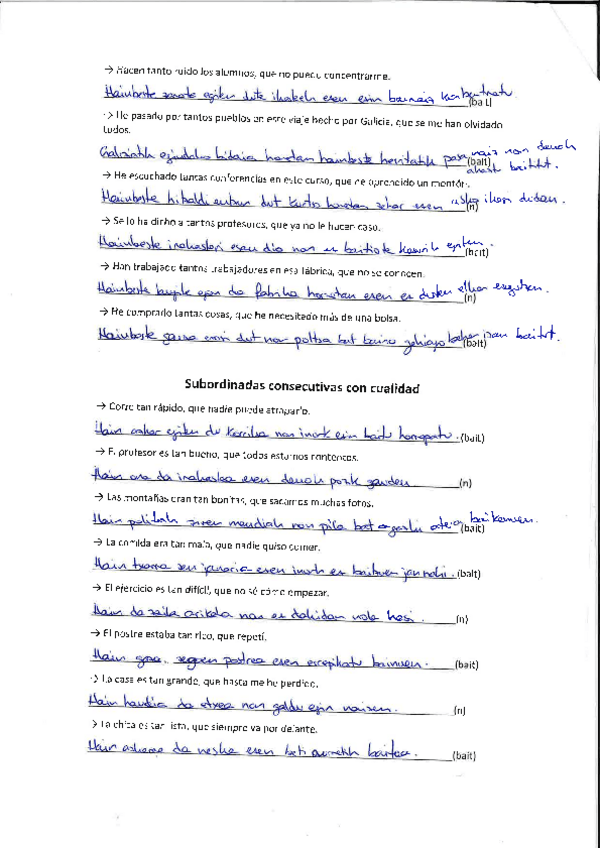 → Hacen tanto ruido los alumnos, que no puedo concentrarme.
Hainbeste zarata egiten dute ikasleek ezen ezin bainaiz kontzentratu
(bait)
→ He pasado por tantos pueblos en este viaje hecho por Galicia, que se me han olvidado
todos.
Galiziatik egindako bidaia honetan hainbeste herritatik pasa naiz non denak
ahaztu baititut.
(bait)
→ He escuchado tantas conferencias en este curso, que he aprendido un montón.
Hainbeste hitzaldi entzun dut kurtso honetan zehar ezen asko ikasi dudan.
(n)
→ Se lo ha dicho a tantos profesores, que ya no le hacen caso.
Hainbeste irakasleri esan dio non ez baitiote kasurik egiten.
(bait)
→ Han trabajado tantos trabajadores en esa fábrica, que no se conocen.
Hainbeste langile egon da fabrika horretan ezen ez duten elkar ezagutzen.
(n)
→ He comprado tantas cosas, que he necesitado más de una bolsa.
Hainbeste gauza erosi dut non poltsa bat baino gehiago behar izan baitut.
(bait)
Subordinadas consecutivas con cualidad
→ Corre tan rápido, que nadie puede atraparlo.
Hain azkar egiten du korrika non inork ezin baitu harrapatu. (bait)
→ El profesor es tan bueno, que todos estamos contentos.
Hain ona da irakaslea ezen denok pozik gauden (n)
→ Las montañas eran tan bonitas, que sacamos muchas fotos.
Hain politak ziren mendiak non pila bat argazki atera baikenuen.
(bait)
→ La comida era tan mala, que nadie quiso comer.
Hain txarra zen janaria ezen inork ez baitzuen jan nahi. (bait)
→ El ejercicio es tan difícil, que no sé cómo empezar.
Hain da zaila ariketa non ez dakidan nola hasi. (n)
→ El postre estaba tan rico, que repetí.
Hain goxo zegoen postrea ezen errepikatu bainuen. (bait)
→ La casa es tan grande, que hasta me he perdido.
Hain handia da etxea non galdu egin naizen. (n)
→ La chica es tan lista, que siempre va por delante.
Hain azkarra da neska ezen beti aurretik baitoa. (bait)